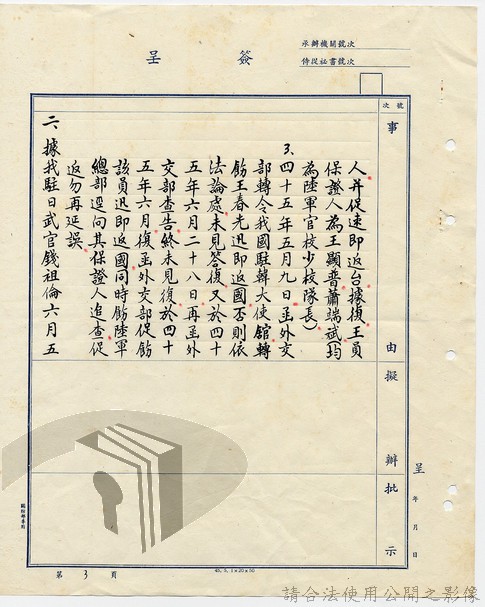 簽呈
承辦機關號次
侍從祕書號次
號次
事由擬辦批示
呈 年 月 日
人并促速即返台據復王員
保證人為王顯普蕭端斌(均
為陸軍官校少校隊長)
3、四十五年五月九日函外交
部轉令我國駐韓大使館轉
飭王春先迅即返國否則依
法論處未見答復又於四十
五年六月二十八日再函外
交部查告終未見復於四十
五年六月復函外交部促飭
該員迅即返國同時飭陸軍
總部逕向其保證人追查促
返勿再延誤
二、據我駐日武官錢祖倫六月五
第3頁
45. 5. 1×20×50
請合法使用公開之影像